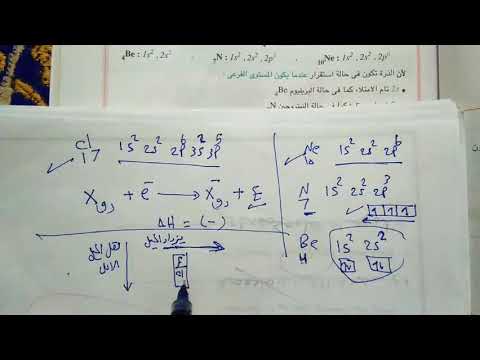 ₄Be : 1s² , 2s²   ₇N : 1s² , 2s² , 2p³   ₁₀Ne : 1s² , 2s² , 2p⁶
لأن الذرة تكون فى حالة استقرار عندما يكون المستوى الفرعى :
• تام الامتلاء كما فى حالة البريليوم ₄Be
Cl 17 1s² 2s² 2p⁶ 3s² 3p⁵
X + e⁻ → X⁻ + E
ΔH = (-)
يزداد الميل
يقل الميل
F
Cl
Ne 10 1s² 2s² 2p⁶
N 7 1s² 2s² 2p³
1 1 1
Be 4 1s² 2s²